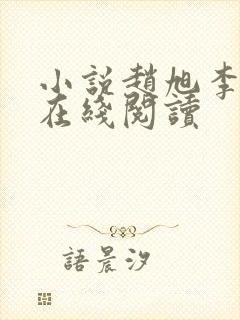 小説趙旭李
在綫閱讀
語晨汐